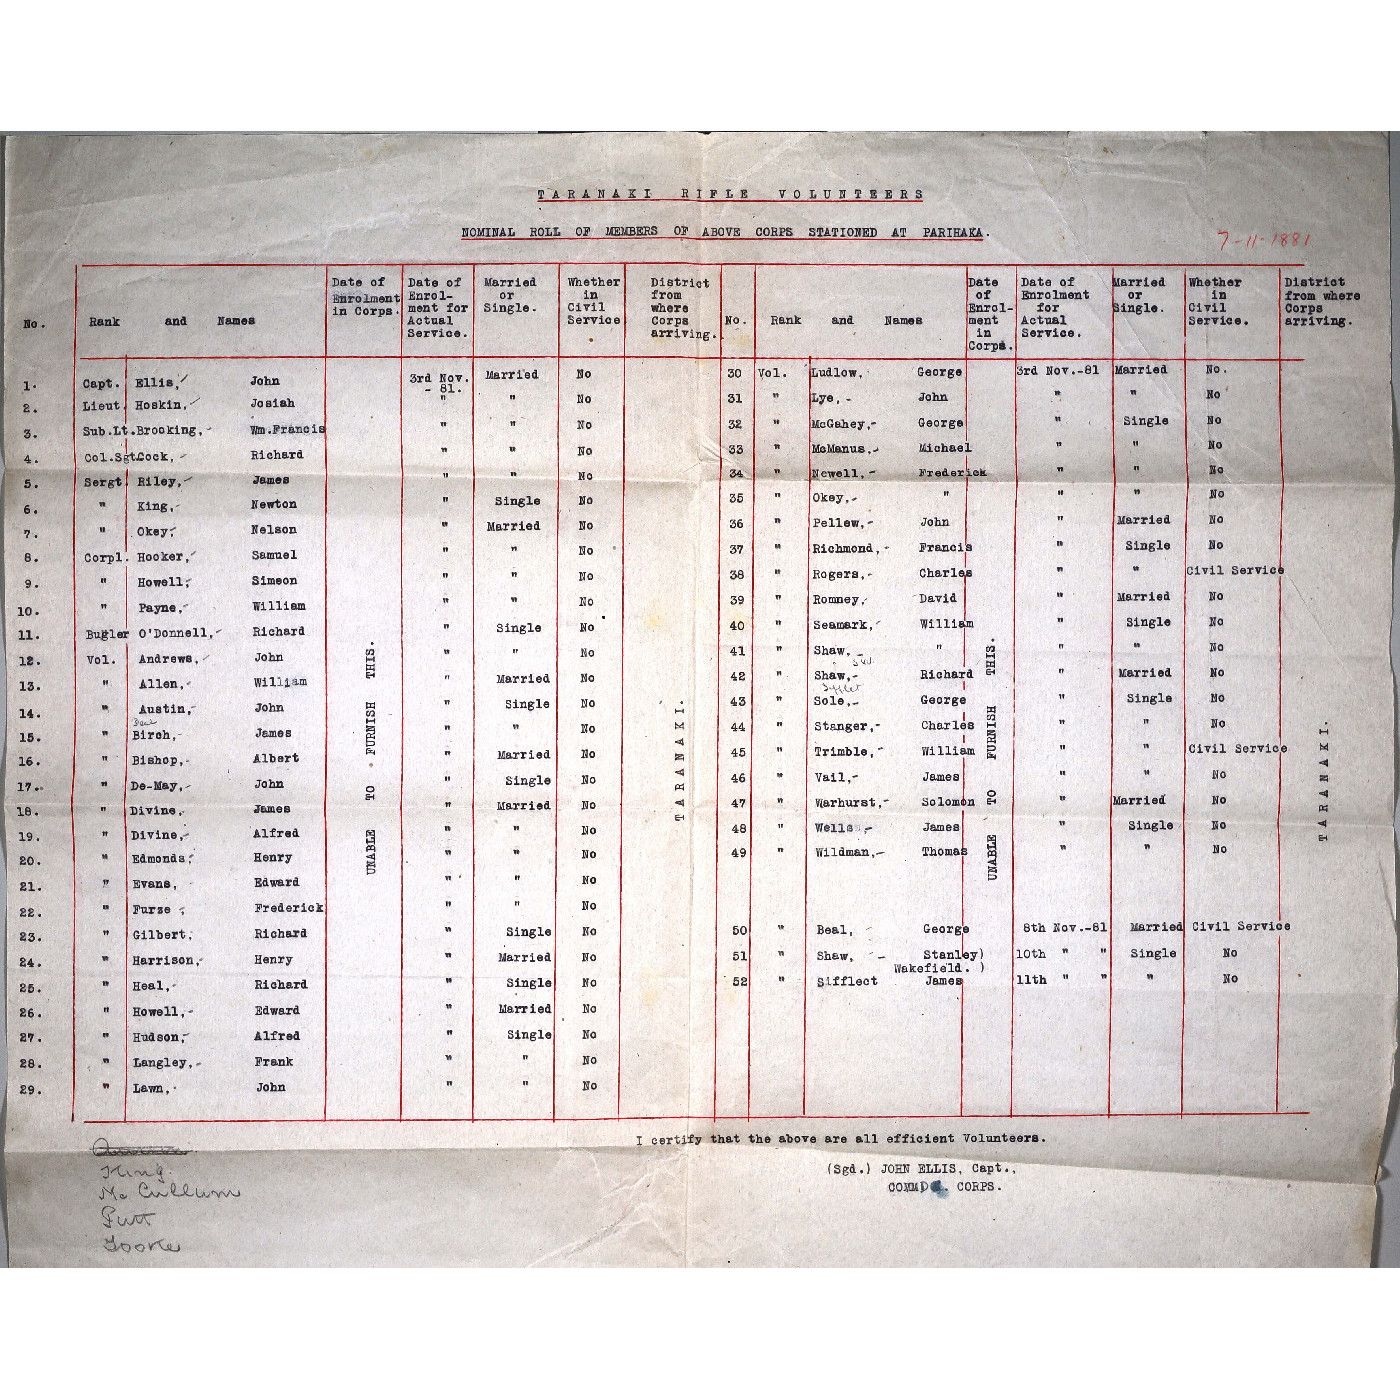 TARANAKI RIFLE VOLUNTEERS
NOMINAL ROLL OF MEMBERS OF ABOVE CORPS STATIONED AT PARIHAKA.
7-11-1881
No. Rank and Names Date of Enrolment in Corps. Date of Enrol-ment for Actual Service. Married or Single. Whether in Civil Service District from where Corps arriving.
1. Capt. Ellis, John 3rd Nov. - 81. Married No
2. Lieut. Hoskin, Josiah " " No
3. Sub.Lt. Brooking, Wm.Francis " " No
4. Col.Sgt. Cock, Richard " " No
5. Sergt. Riley, James " " No
6. " King, Newton " Single No
7. " Okey, Nelson " Married No
8. Corpl. Hooker, Samuel " " No
9. " Howell, Simeon " " No
10. " Payne, William " " No
11. Bugler O'Donnell, Richard " Single No
12. Vol. Andrews, John " " No
13. " Allen, William " Married No
14. " Austin, John " Single No
15. " Birch, James " " No
16. " Bishop, Albert " Married No
17. " De-May, John " Single No
18. " Divine, James " Married No
19. " Divine, Alfred " " No
20. " Edmonds, Henry " " No
21. " Evans, Edward " " No
22. " Furze, Frederick " " No
23. " Gilbert, Richard " Single No
24. " Harrison, Henry " Married No
25. " Heal, Richard " Single No
26. " Howell, Edward " Married No
27. " Hudson, Alfred " Single No
28. " Langley, Frank " " No
29. " Lawn, John " " No
UNABLE TO FURNISH THIS.
TARANAKI.
No. Rank and Names Date of Enrol-ment in Corps. Date of Enrolment for Actual Service. Married or Single. Whether in Civil Service. District from where Corps arriving.
30 Vol. Ludlow, George 3rd Nov.-81 Married No.
31 " Lye, - John " " No
32 " McGahey,- George " Single No
33 " McManus,- Michael " " No
34 " Newell,- Frederick " " No
35 " Okey,- " " " No
36 " Pellew,- John " Married No
37 " Richmond,- Francis " Single No
38 " Rogers,- Charles " " Civil Service
39 " Romney, David " Married No
40 " Seamark, William " Single No
41 " Shaw, " " " No
42 " Shaw,- Richard " Married No
Sifflet
43 " Sole,- George " Single No
44 " Stanger,- Charles " " No
45 " Trimble, William " " Civil Service
46 " Vail,- James " " No
47 " Warhurst,- Solomon " Married No
48 " Wells,- James " Single No
49 " Wildman,- Thomas " " No
50 " Beal, George 8th Nov.-81 Married Civil Service
51 " Shaw, - Stanley) 10th " " Single No
Wakefield. )
52 " Sifflect James 11th " " " No
UNABLE TO FURNISH THIS.
TARANAKI.
I certify that the above are all efficient Volunteers.
(Sgd.) JOHN ELLIS, Capt.,
COMMDG. CORPS.
King.
McCullum
Putt